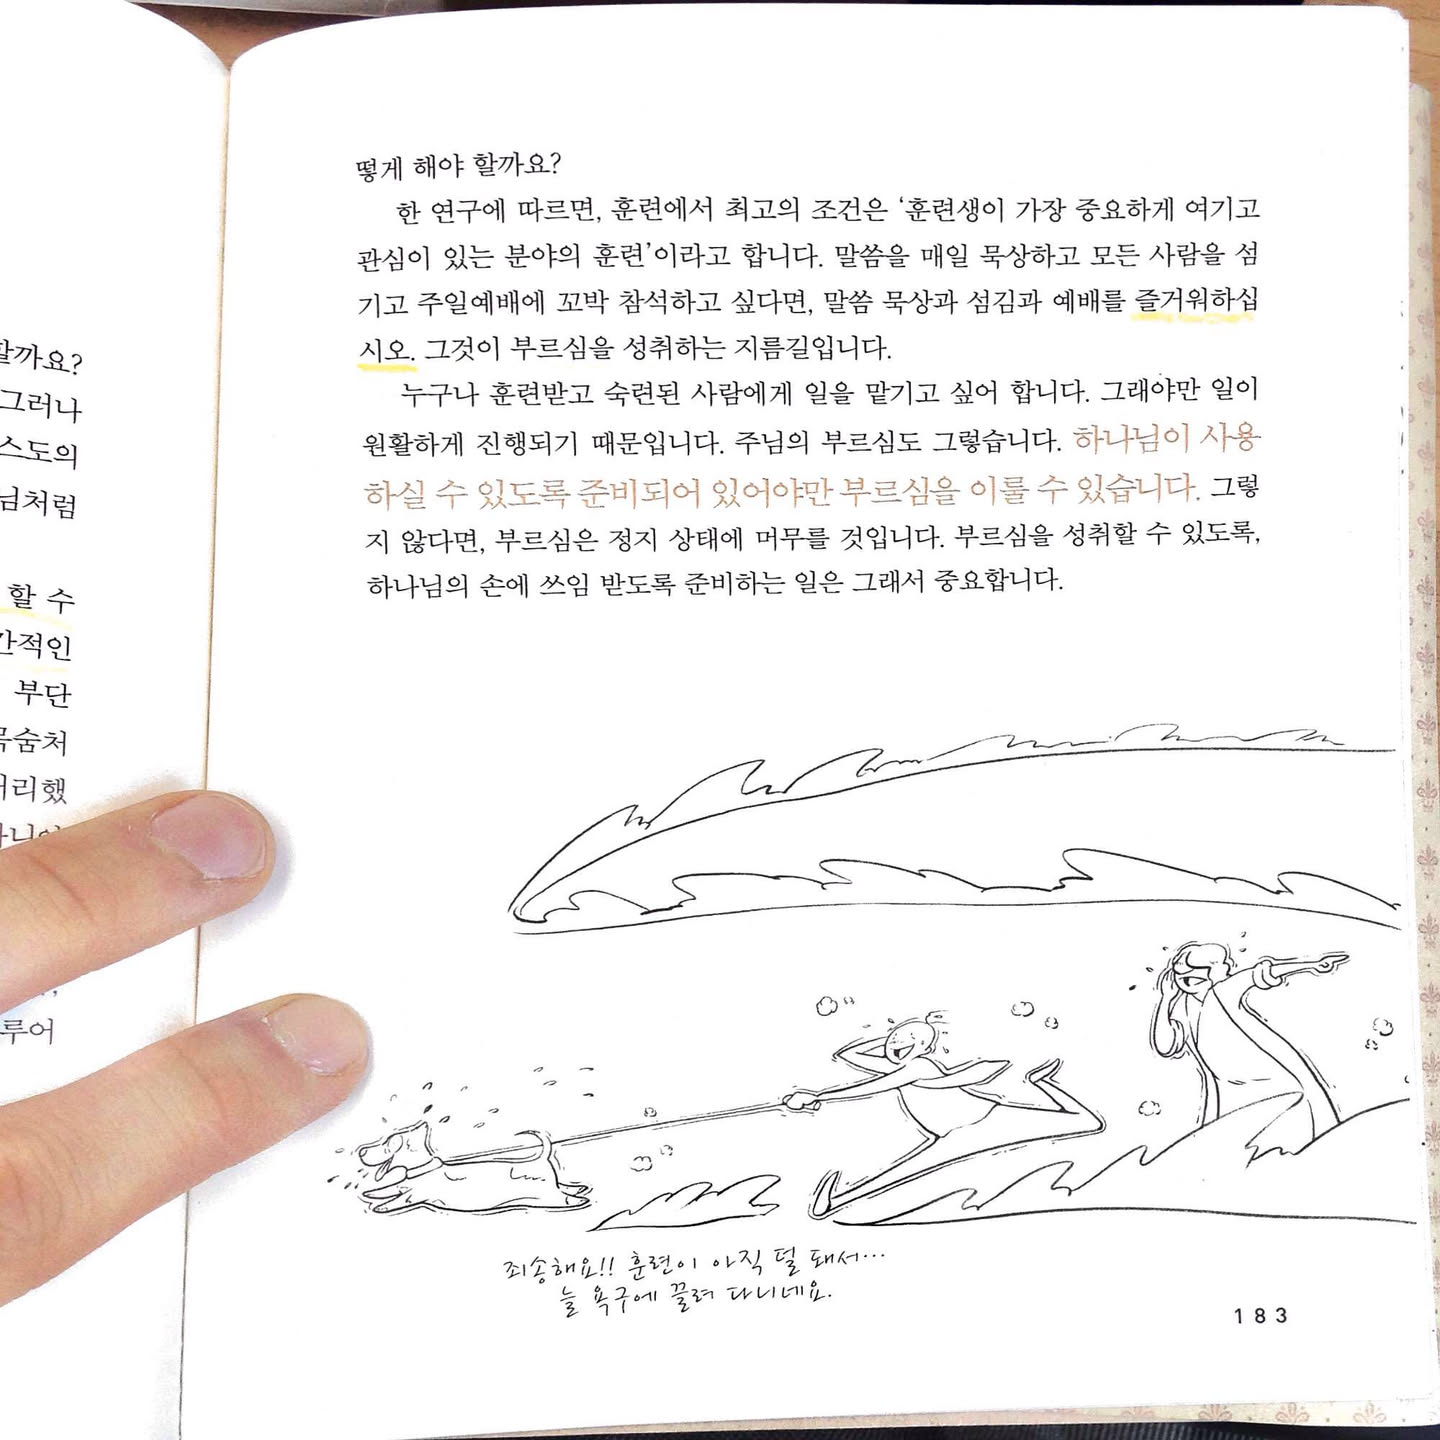 할까요?
그러나
스도의
님처럼
할 수
간적인
부단
목숨처
루어
떻게 해야 할까요?
한 연구에 따르면, 훈련에서 최고의 조건은 ‘훈련생이 가장 중요하게 여기고
관심이 있는 분야의 훈련’이라고 합니다. 말씀을 매일 묵상하고 모든 사람을 섬
기고 주일예배에 꼬박 참석하고 싶다면, 말씀 묵상과 섬김과 예배를 즐거워하십
시오. 그것이 부르심을 성취하는 지름길입니다.
누구나 훈련받고 숙련된 사람에게 일을 맡기고 싶어 합니다. 그래야만 일이
원활하게 진행되기 때문입니다. 주님의 부르심도 그렇습니다. 하나님이 사용
하실 수 있도록 준비되어 있어야만 부르심을 이룰 수 있습니다. 그렇
지 않다면, 부르심은 정지 상태에 머무를 것입니다. 부르심을 성취할 수 있도록,
하나님의 손에 쓰임 받도록 준비하는 일은 그래서 중요합니다.
죄송해요!! 훈련이 아직 덜 돼서...
늘 욕구에 끌려 다니네요.
183